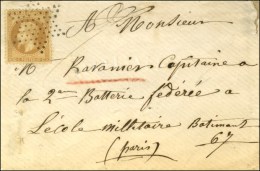 A Monsieur
M Ravanier Capitaine a
la 2me Batterie fédérée a
L'école militaire Batiment
67
(paris)